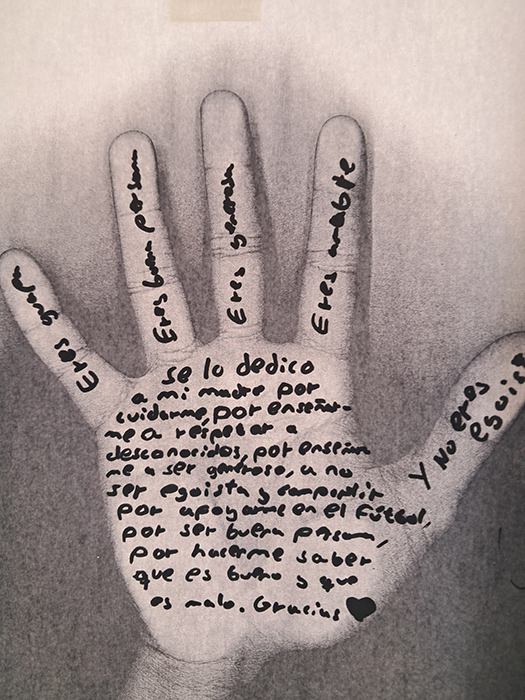 Eres guapa
Eres buena persona
Eres generosa
Eres amable
Y No eres
egoista
se lo dedico
a mi madre por
cuidarme, por enseñar-
me a respetar a
desconocidos, por enseñar
me a ser generoso, a no
ser egoista y compartir
por apoyarme en el fútbol,
por ser buena persona,
por hacerme saber
que es bueno y que
es malo. Gracias